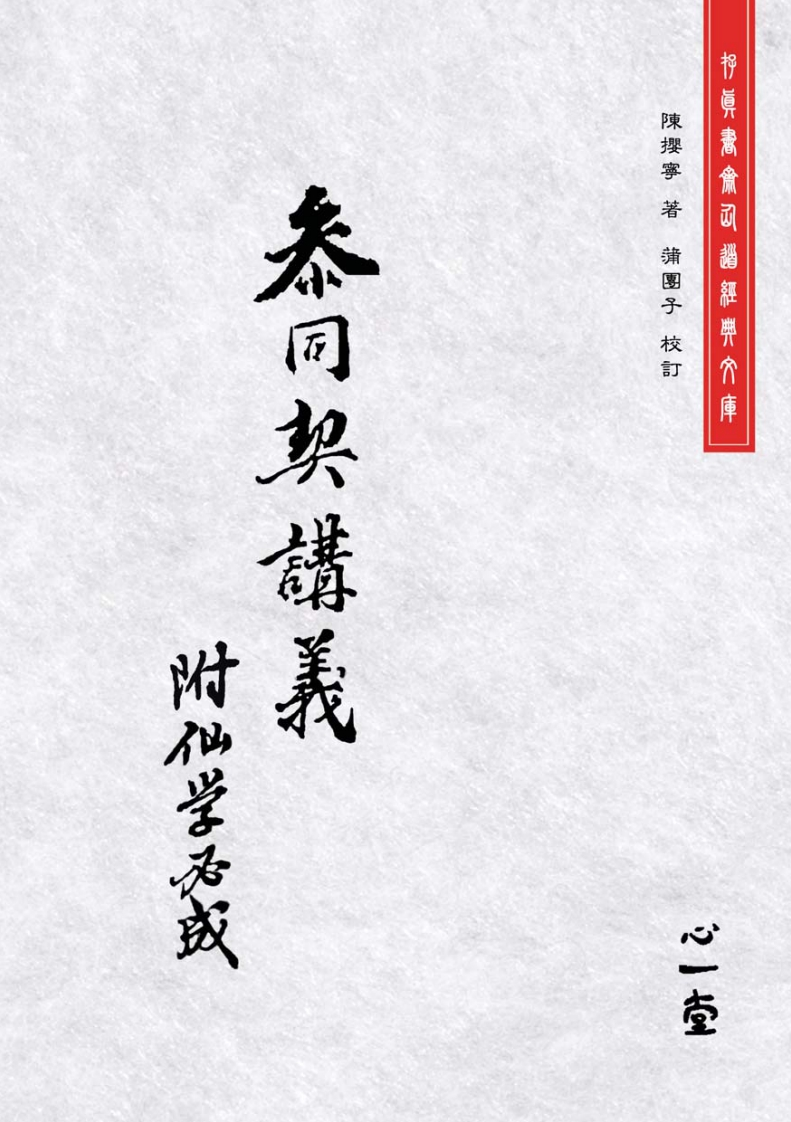 存眞書齋仙道經典文庫
陳攖寧 著 蒲團子 校訂
参同契講義
附仙学必成
心一堂